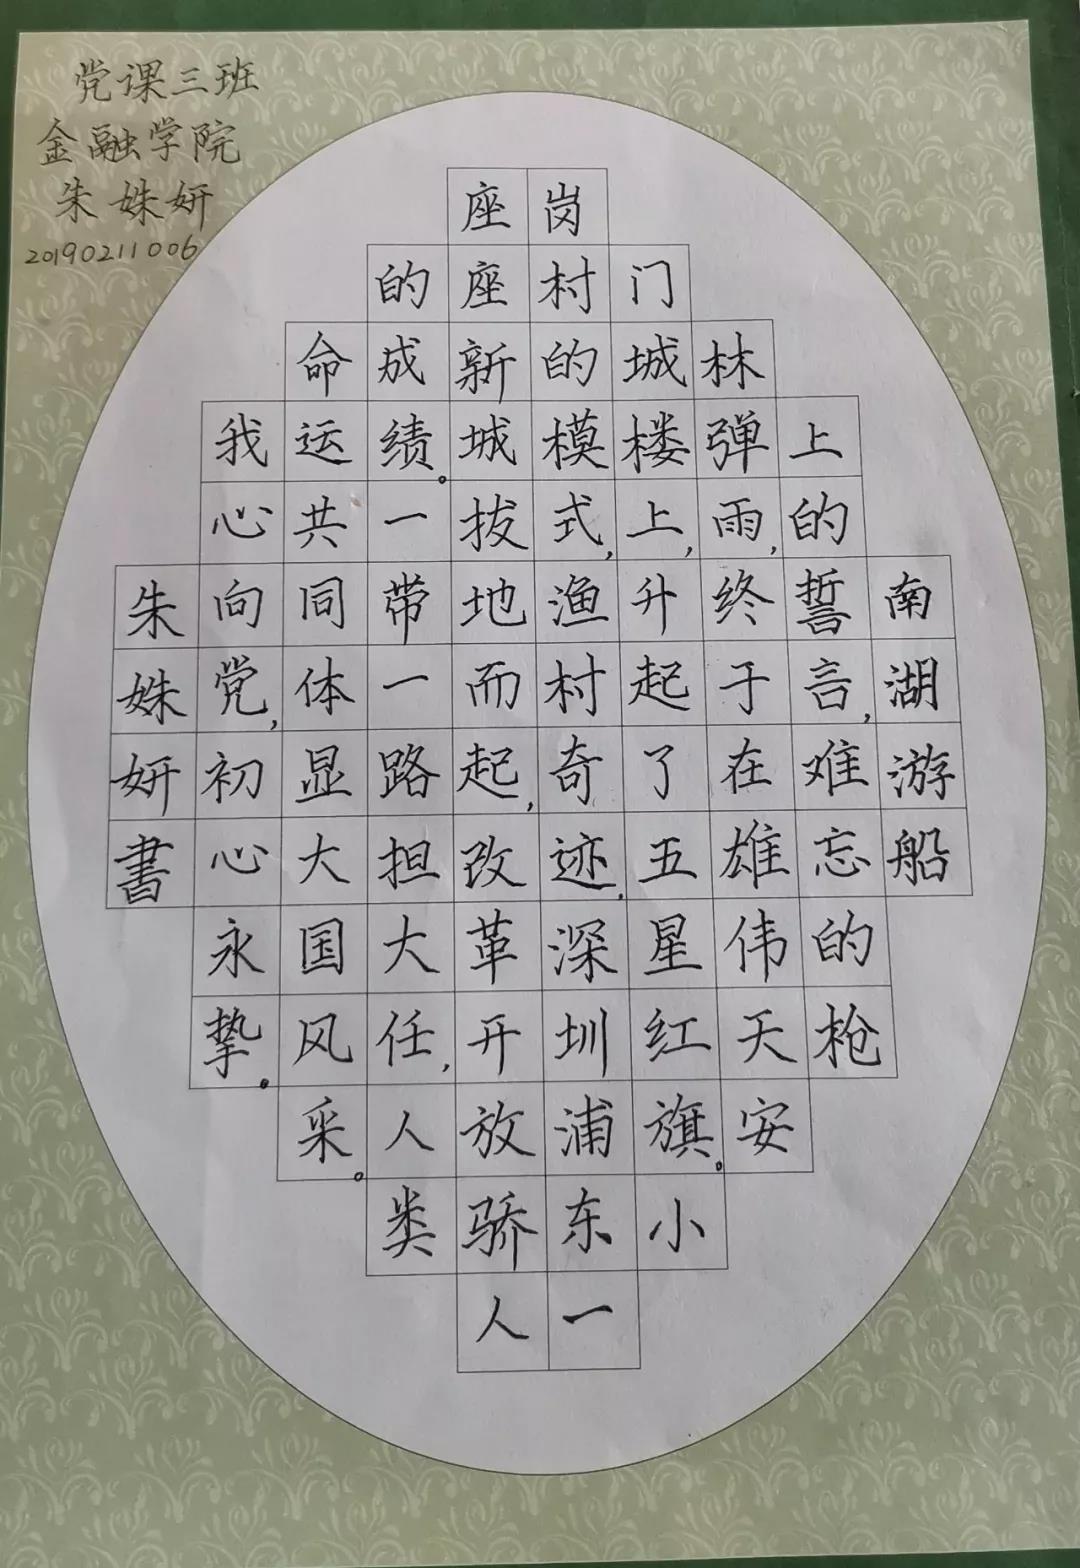 党课三班
金融学院
朱姝妍
20190211006
南湖游船
上的誓言,难忘的枪
林弹雨,终于在雄伟天安
门城楼上,升起了五星红旗。小
岗村的模式,渔村奇迹.深圳浦东一
座座新城拔地而起,改革开放骄人
的成绩。一带一路担大任,人类
命运共同体显大国风采。
我心向党,初心永挚。
朱姝妍書